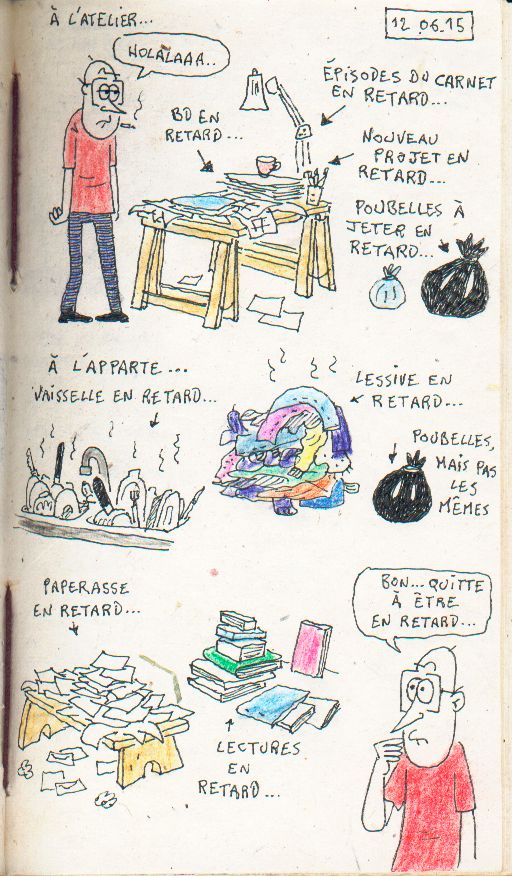 À L'ATELIER...
12.06.15
HOLALAAA..
ÉPISODES DU CARNET
EN RETARD...
BD EN
RETARD...
NOUVEAU
PROJET EN
RETARD...
POUBELLES À
JETER EN
RETARD...
À L'APPARTE...
VAISSELLE EN RETARD...
LESSIVE EN
RETARD...
POUBELLES,
MAIS PAS
LES
MÊMES
PAPERASSE
EN RETARD...
LECTURES
EN
RETARD...
BON... QUITTE
À ÊTRE
EN RETARD...